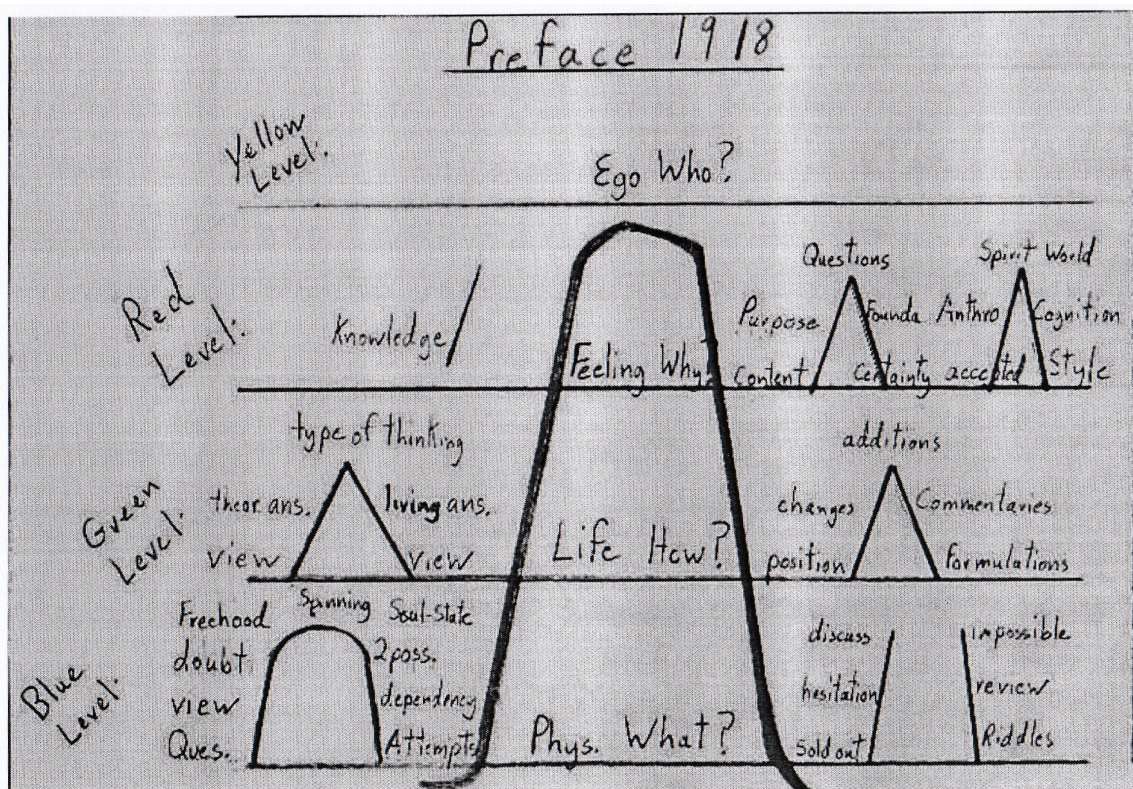 Preface 1918
Yellow Level:
Ego Who?
Red Level:
Knowledge
Feeling Why?
Questions
Purpose Founda
Content Certainty
Spirit World
Anthro Cognition
accepted Style
Green Level:
type of thinking
theor. ans. living ans.
view view
Life How?
additions
changes Commentaries
position Formulations
Blue Level:
Freehood Spinning Soul-State
doubt 2 poss.
view dependency
Ques. Attempts
Phys. What?
discuss impossible
hesitation review
Sold out Riddles